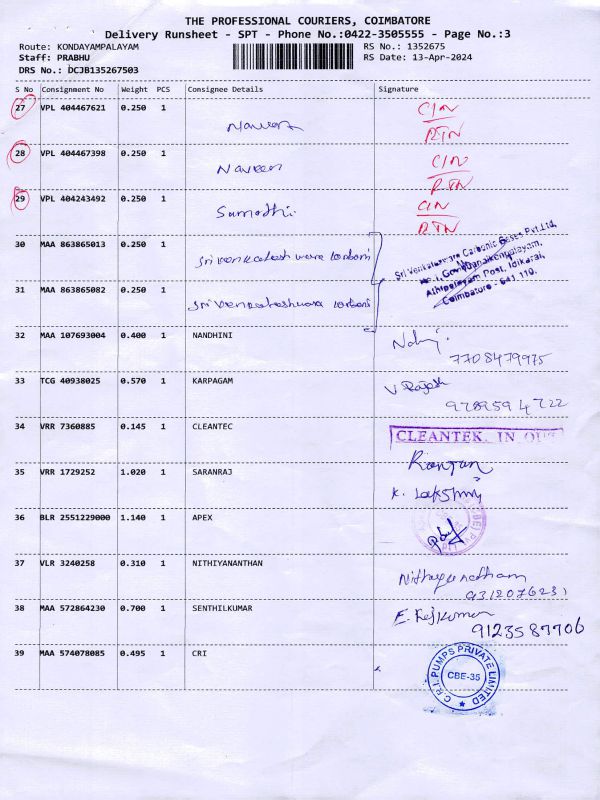 THE PROFESSIONAL COURIERS, COIMBATORE
Delivery Runsheet - SPT - Phone No.:0422-3505555 - Page No.:3
Route: KONDAYAMPALAYAM RS No.: 1352675
Staff: PRABHU RS Date: 13-Apr-2024
DRS No.: DCJB135267503
S No Consignment No Weight PCS Consignee Details Signature
27 VPL 404467621 0.250 1 Naveen C/N
RTN
28 VPL 404467398 0.250 1 Naveen C/N
RTN
29 VPL 404243492 0.250 1 Sumathi C/N
RTN
30 MAA 863865013 0.250 1 Sri Venkatesh wara
Sri Venkateswara Carbonic Gases Pvt.Ltd,
No.1,
Athipalayam Post, Idikarai,
Coimbatore - 641 110.
31 MAA 863865082 0.250 1 Sri Venkateshwara
32 MAA 107693004 0.400 1 NANDHINI
7708479975
33 TCG 40938025 0.570 1 KARPAGAM V. Rajesh
9789594722
34 VRR 7360885 0.145 1 CLEANTEC CLEANTEK. IN OUT
35 VRR 1729252 1.020 1 SARANRAJ Ranjan
K. Lakshmi
36 BLR 2551229000 1.140 1 APEX
37 VLR 3240258 0.310 1 NITHIYANANTHAN
9312076231
38 MAA 572864230 0.700 1 SENTHILKUMAR E. Rajkumar
9123587706
39 MAA 574078085 0.495 1 CRI C.R.I. PUMPS PRIVATE LIMITED
CBE-35